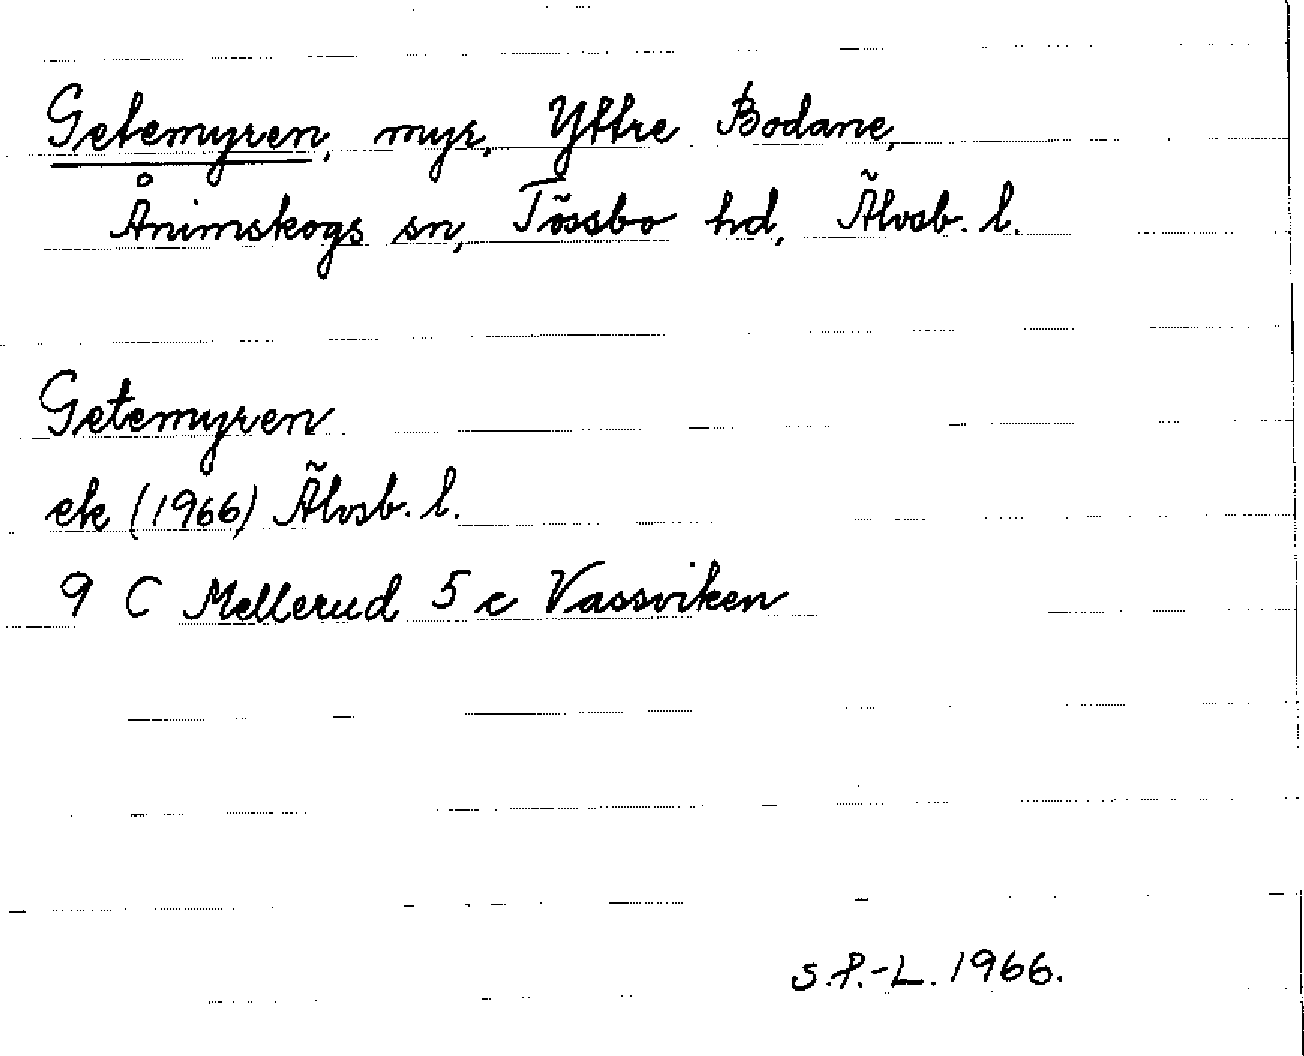 Getemyren, myr, Yttre Bodane,
Ånimskogs sn, Tössbo hd, Älvsb. l.
Getemyren
ek (1966) Älvsb. l.
9 C Mellerud 5 c Vassviken
S.P.-L. 1966.